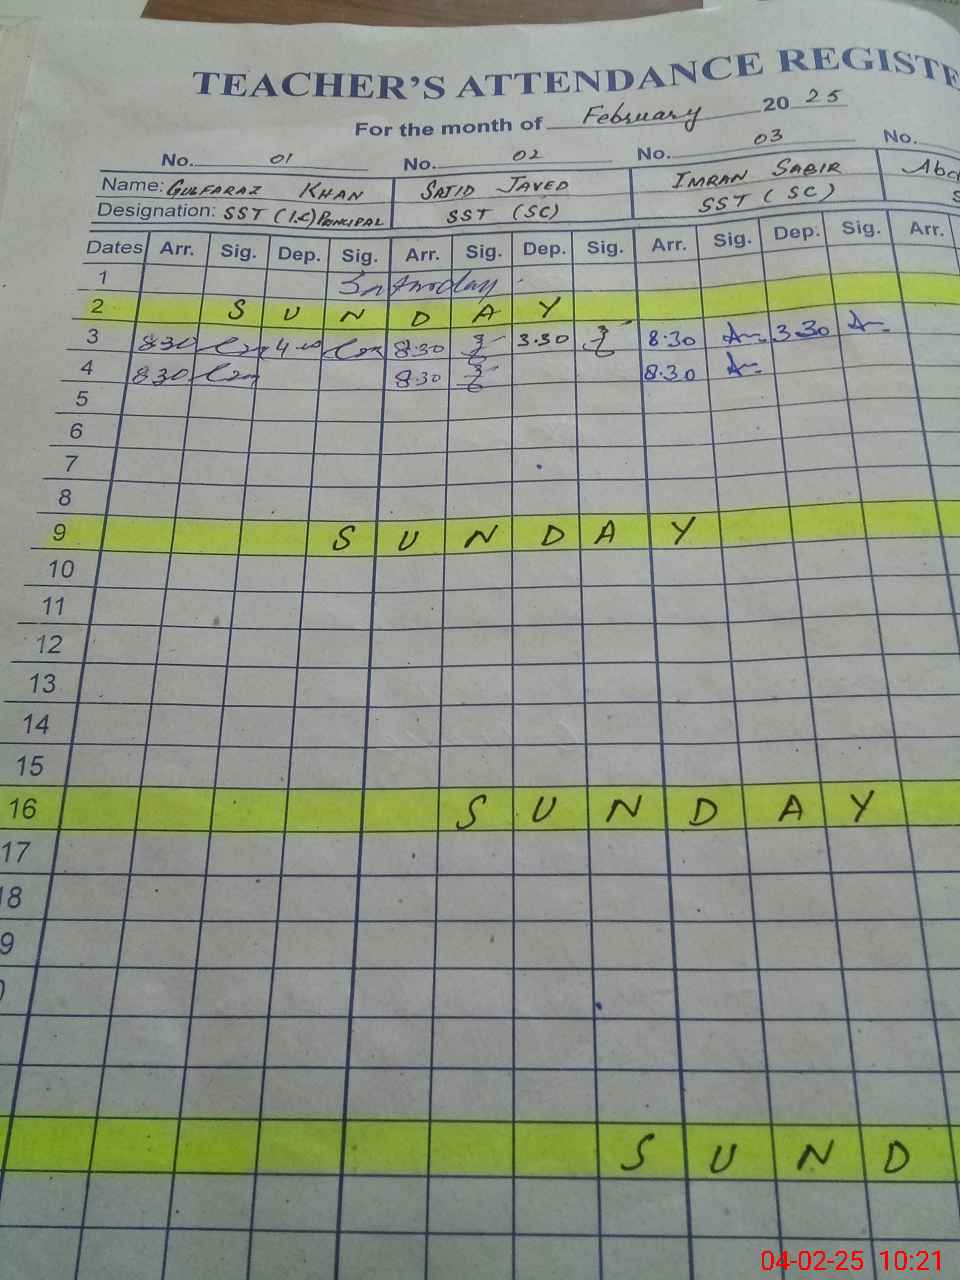 TEACHER'S ATTENDANCE REGISTE
For the month of February 2025
No. 01 No. 02 No. 03 No.
Name: GULFARAZ KHAN SAJID JAVED IMRAN SABIR Abd
Designation: SST (I.C) PRINCIPAL SST (SC) SST (SC) S
Dates Arr. Sig. Dep. Sig. Arr. Sig. Dep. Sig. Arr. Sig. Dep. Sig. Arr.
1
2 SUNDAY
3 8:30 4:00 8:30 3.30 8:30 3:30
4 8:30 8:30 8:30
5
6
7
8
9 SUNDAY
10
11
12
13
14
15
16 SUNDAY
17
18
9
SUND
04-02-25 10:21